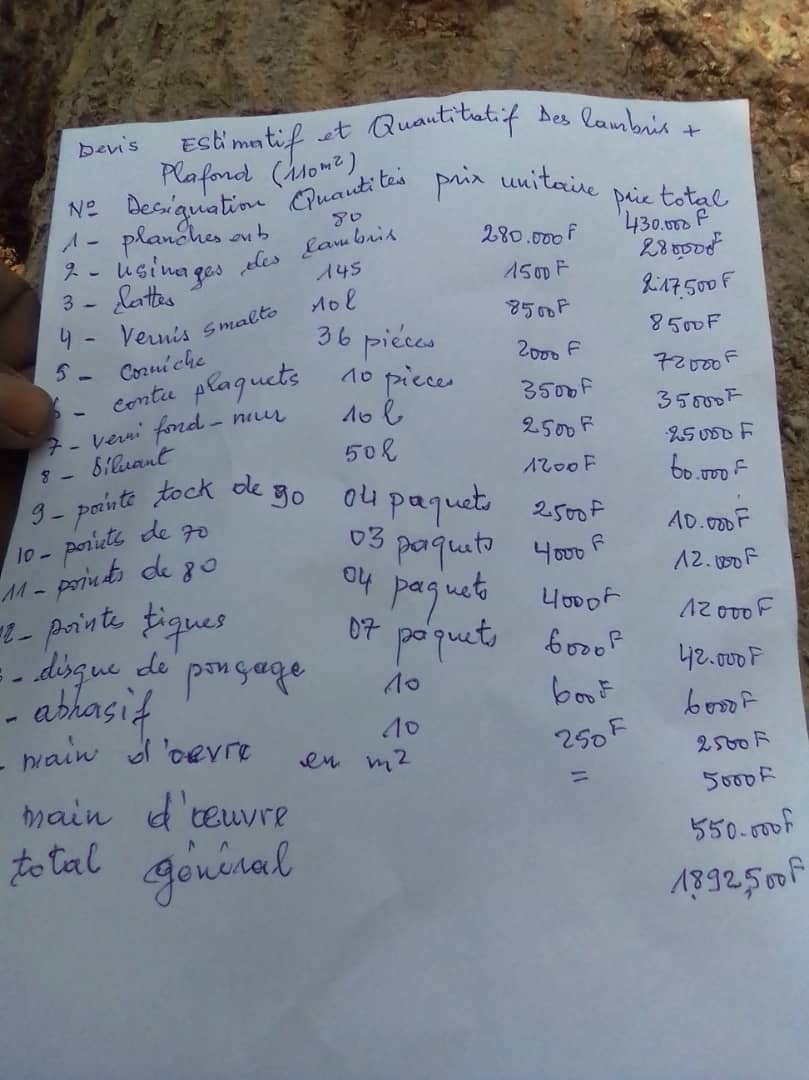 Devis Estimatif et Quantitatif Des lambris +
Plafond (110m²)
N° Designation Quantités prix unitaire prix total
1 - planches 80 430.000F
2 - usinages des lambris 280.000F 280000F
3 - lattes 145 1500F 217,500F
4 - Vernis smalto 10l 8500F 8500F
5 - Corniche 36 piéces 2000F 72000F
6 - contre plaquets 10 pieces 3500F 35000F
7 - verni fond-mur 10l 2500F 25000F
8 - Diluant 50l 1200F 60.000F
9 - pointe tock de 90 04 paquets 2500F 10.000F
10 - points de 70 03 paquets 4000F 12.000F
11 - points de 80 04 paquets 4000F 12000F
12 - pointes tiques 07 paquets 6000F 42.000F
- disque de ponçage 10 600F 6000F
- abrasif 10 250F 2500F
- main d'oevre en m2 = 5000F
main d'œuvre 550.000F
total général 1892,500F